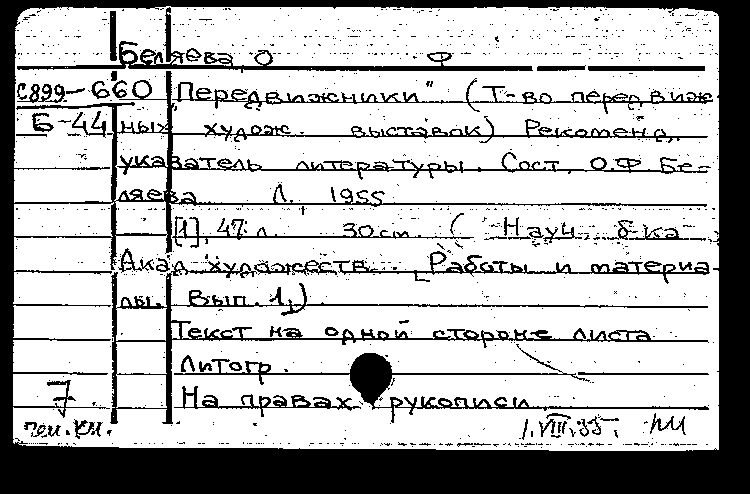 Беляева, О Ф
С899-660 "Передвижники" (Т-во передвиж-
Б-44 ных худож. выставок) Рекоменд.
указатель литературы. Сост. О.Ф. Бе-
ляева. Л., 1955
[1], 47 л. 30 см. (Науч. б-ка
Акад. художеств. [Работы и материа-
лы. Вып. 1])
Текст на одной стороне листа
Литогр.
На правах рукописи
7
1.VIII.55.